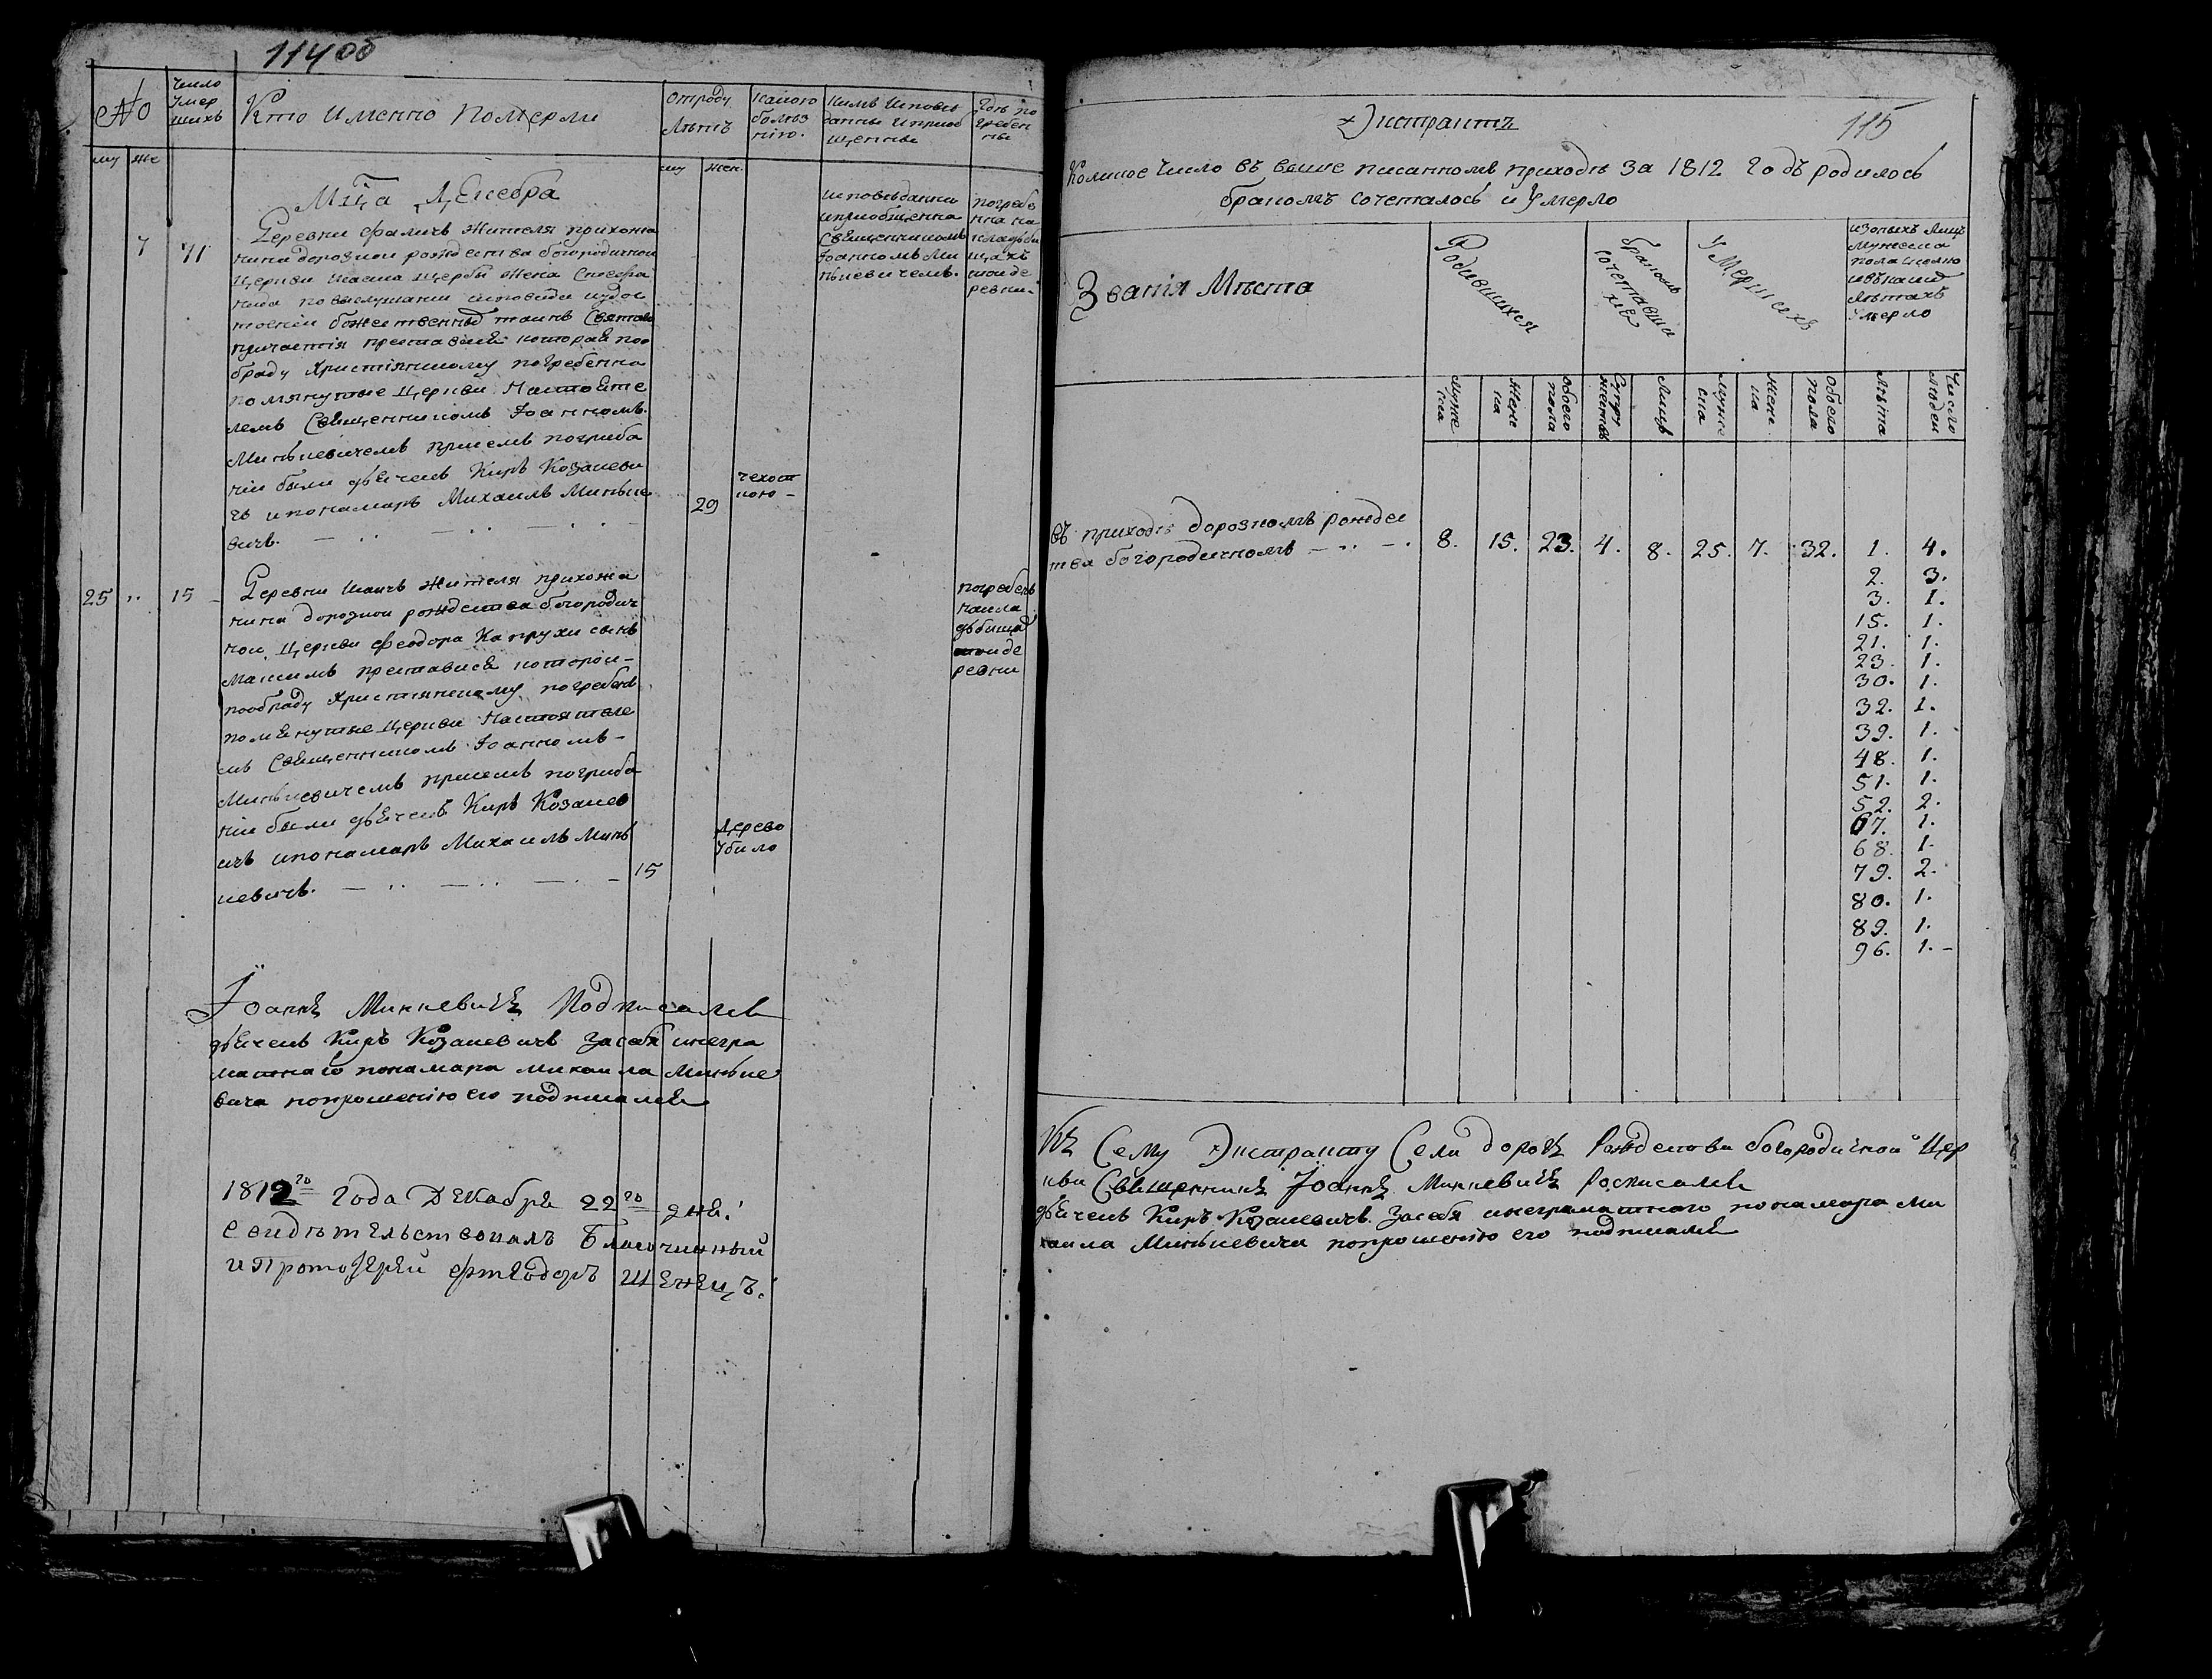 114 об
№
Число
умер
шихъ
Кто Именно Померли
отроду
Лѣтъ
какою
болѣз
нію.
кимъ Исповѣ
данны и приоб
щенны
Гдѣ по
гребен
ны
му же
му жен.
Мца Декебра
7
71
Деревни Фаличъ Жителя прихожа
нина дорозкои рождества богородичнои
Церкви Щерби Жена Стефа
нида по выслушании исповеди иудос
тоении божественныхъ таинъ Святаго
причастія преставися которая поо
бряду Христіянскому погребенна
помянутые Церкви Настояте
лемъ Священникомъ Іоанномъ
Минкевичемъ присемъ погриба
ніи были дьячекъ Киръ Козакеви
чъ ипонамарь Михаилъ Минке
вичъ.
29
чехот
кою
исповѣданна
иприобщенна
Священникомъ
Іоанномъ Ми
нкевичемъ.
погребе
нна на
кладби
щахъ
тои де
ревни.
25
15
Деревни Жителя прихожа
нина дорозкои рождества богородич
нои Церкви Феодора Капрухи сынъ
Максимъ преставися которои
пообряду Христіянскому погребенъ
помянутые Церкви Настоятеле
мъ Священникомъ Іоанномъ
Минкевичемъ присемъ погриба
ніи были дьячекъ Киръ Козакев
ичъ ипонамарь Михаилъ Минь
кевичъ.
15
Дерево
убило
погребенъ
накла
дбищахъ
тои де
ревни
Іоаннъ Минкевичъ Подписался
дьячекъ Киръ Козакевичъ засебя инегра
матнаго понамара михаила Минке
вича попрошенію его подписался
1812го Года Декабря 22го дня!
свидѣтельствовалъ Благочинный
и Протоіерей Фтеодоръ Шенецъ.
Экстрактъ
115
Коликое Число въ выше писанномъ приходѣ за 1812 Годъ родилось
бракомъ сочеталось и Умерло
Званія Мѣста
Родившихся
бракомъ
сочетавши
хся
Умершихъ
изоныхъ Лицъ
Мужеска
пола
Лѣтахъ
Умерло
муже
ска
Жене
ка
обоего
пола
Супру
жествъ
Лицъ
Муже
ска
Жене
ка
Обоего
пола
Лѣта
Число
людеи
Въ приходѣ дорозкомъ рождес
тва богородичномъ
8. 15. 23. 4. 8. 25. 7. 32. 1. 4.
2. 3.
3. 1.
15. 1.
21. 1.
23. 1.
30. 1.
32. 1.
39. 1.
48. 1.
51. 1.
52. 2.
67. 1.
68. 1.
79. 2.
80. 1.
89. 1.
96. 1.
Къ Сему Экстракту Села дорогъ Рождества богородичной Цер
кви Священникъ Іоаннъ Минкевичъ Росписался
дьячекъ Киръ Козакевичъ засебя инеграматного понамара Ми
хаила Минкевича попрошенію его подписался